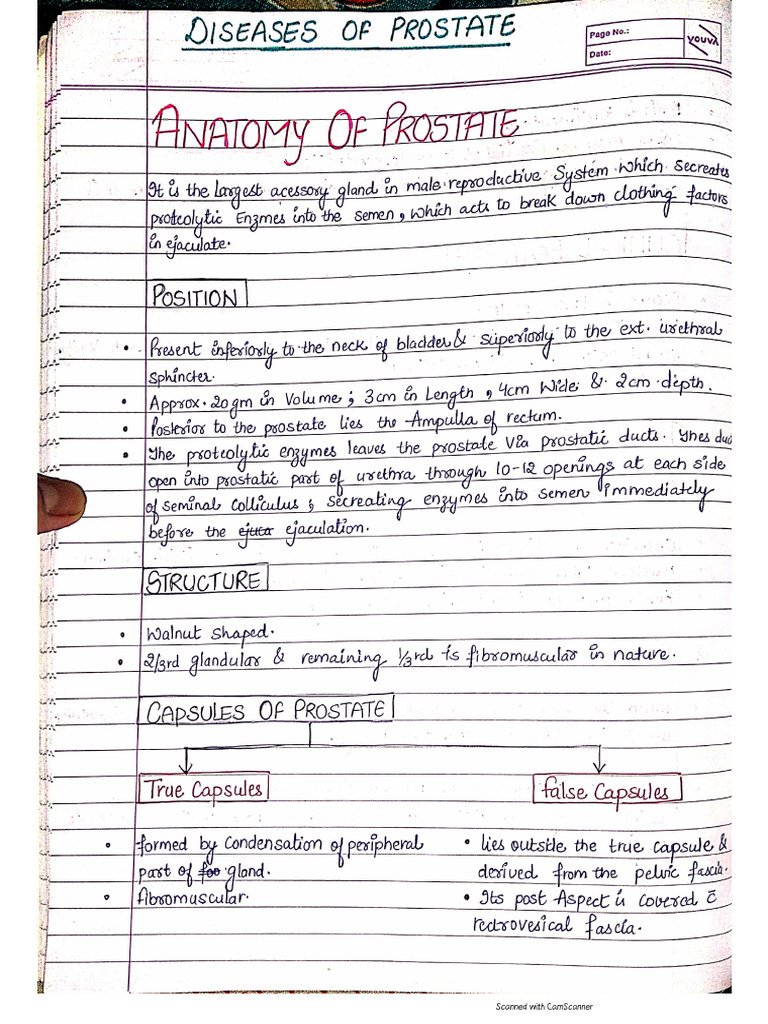 DISEASES OF PROSTATE
Page No.:
Date:
YOUVA
ANATOMY OF PROSTATE
It is the largest acessory gland in male reproductive System which secreates
proteolytic Enzmes into the semen, which acts to break down clothing factors
in ejaculate.
POSITION
• Present inferiorly to the neck of bladder & superiorly to the ext. urethral
sphincter.
• Approx. 20gm in Volume; 3cm in Length, 4cm Wide & 2cm depth.
• Posterior to the prostate lies the Ampulla of rectum.
• The proteolytic enzymes leaves the prostate Via prostatic ducts. Thes duc
open into prostatic part of urethra through 10-12 openings at each side
of seminal colliculus; secreating enzymes into semen immediately
before the ejuca ejaculation.
STRUCTURE
• Walnut shaped.
• 2/3rd glandular & remaining 1/3rd is fibromuscular in nature.
CAPSULES OF PROSTATE
True Capsules
• formed by condensation of peripheral
part of foo gland.
• fibromuscular.
false Capsules
• lies outside the true capsule &
derived from the pelvic fascia.
• Its post Aspect is covered c̄
rectrovesical fascia.
Scanned with CamScanner